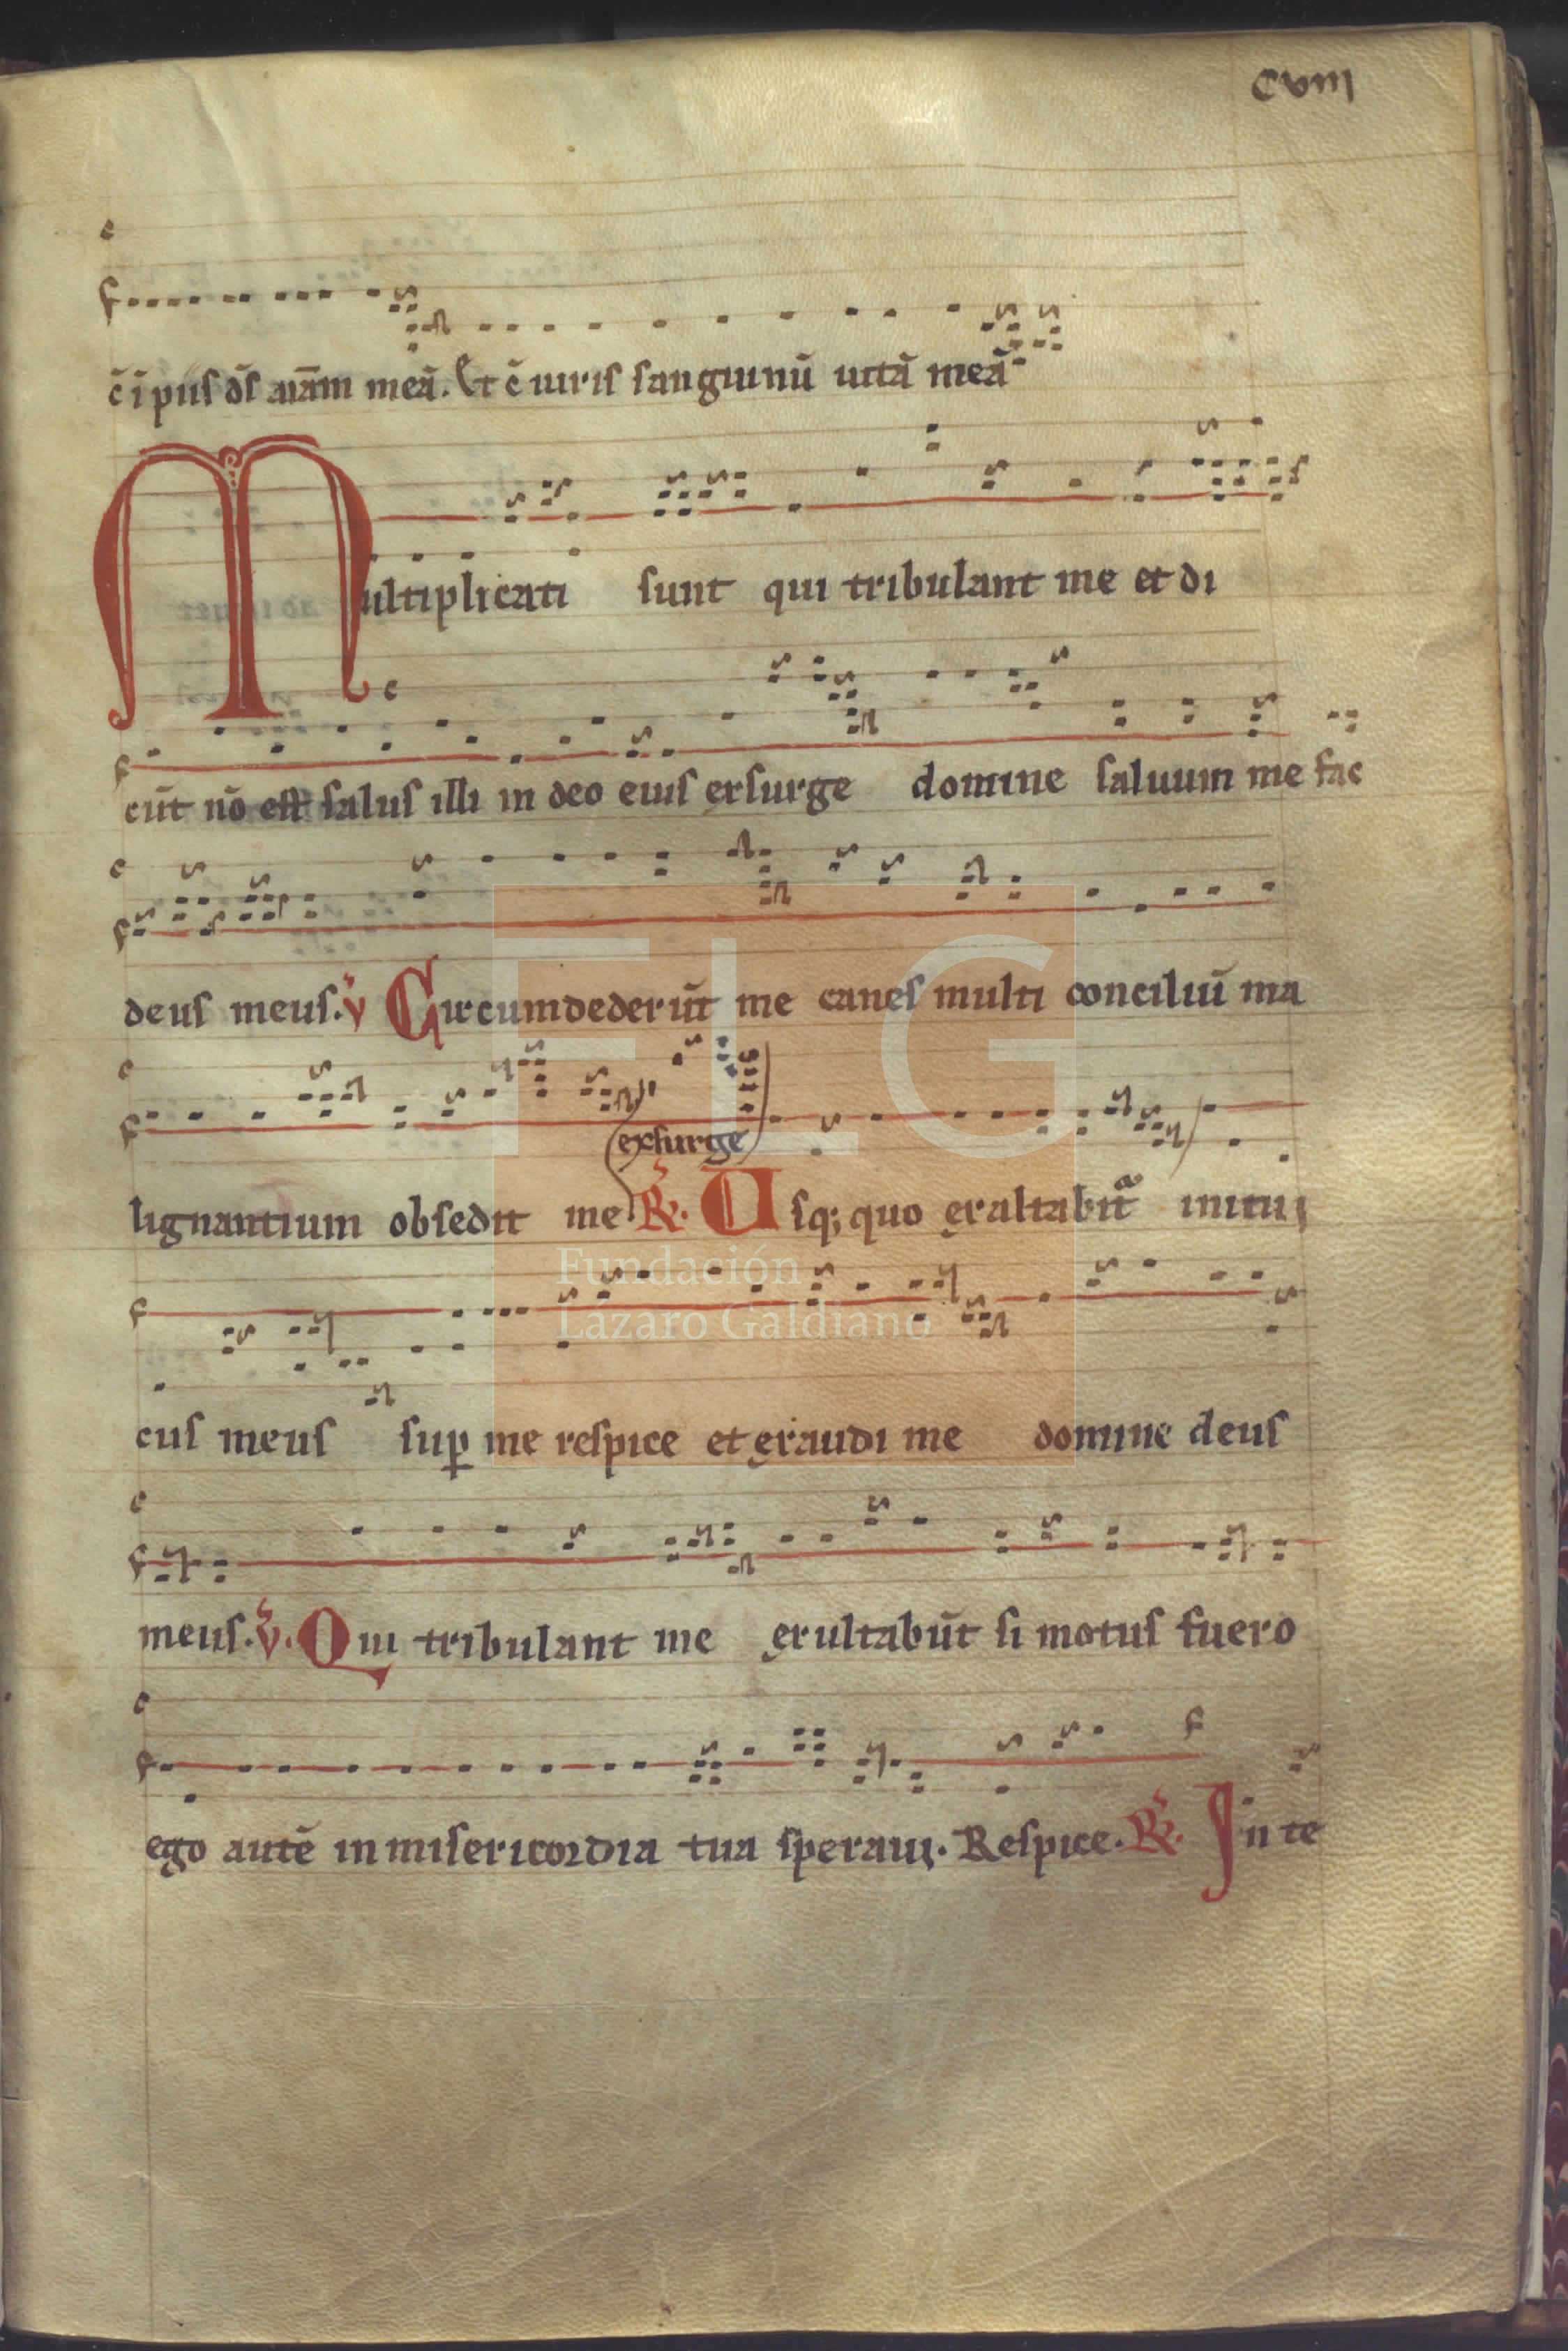 cvııı
c̄ īpiis d̄s aīam meā. Et c̄ uiris sanguinū uitā meā
Multiplicati sunt qui tribulant me et di
cūt nō est salus illi in deo eius exsurge domine saluum me fac
deus meus. v̄ Circumdederūt me canes multi conciliū ma
exsurge
lignantium obsedit me. R̄. Usq; quo exaltabit᷑ inimi
cus meus sup̱ me respice et exaudi me domine deus
meus. v̄. Qui tribulant me exultabūt si motus fuero
ego autē in misericordia tua speraui. Respice. R̄. In te
FLG
Fundación
Lázaro Galdiano